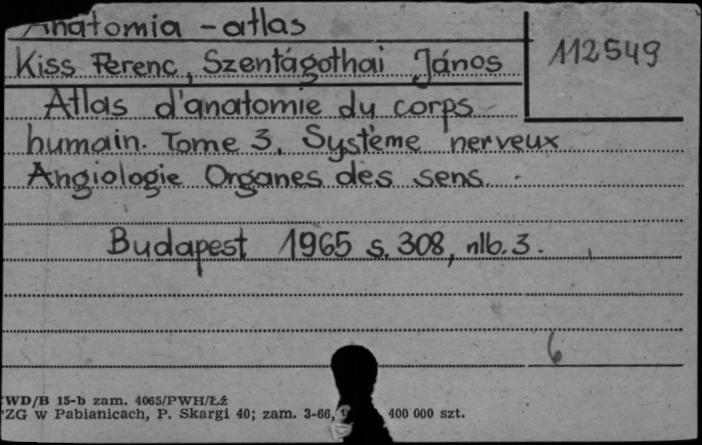 Anatomia - atlas
112549
Kiss Ferenc, Szentágothai János
Atlas d'anatomie du corps
humain. Tome 3. Système nerveux
Angiologie Organes des sens.
Budapest 1965 s. 308, nlb. 3.
6
WD/B 15-b zam. 4065/PWH/Łż
ZG w Pabianicach, P. Skargi 40; zam. 3-66, 400 000 szt.